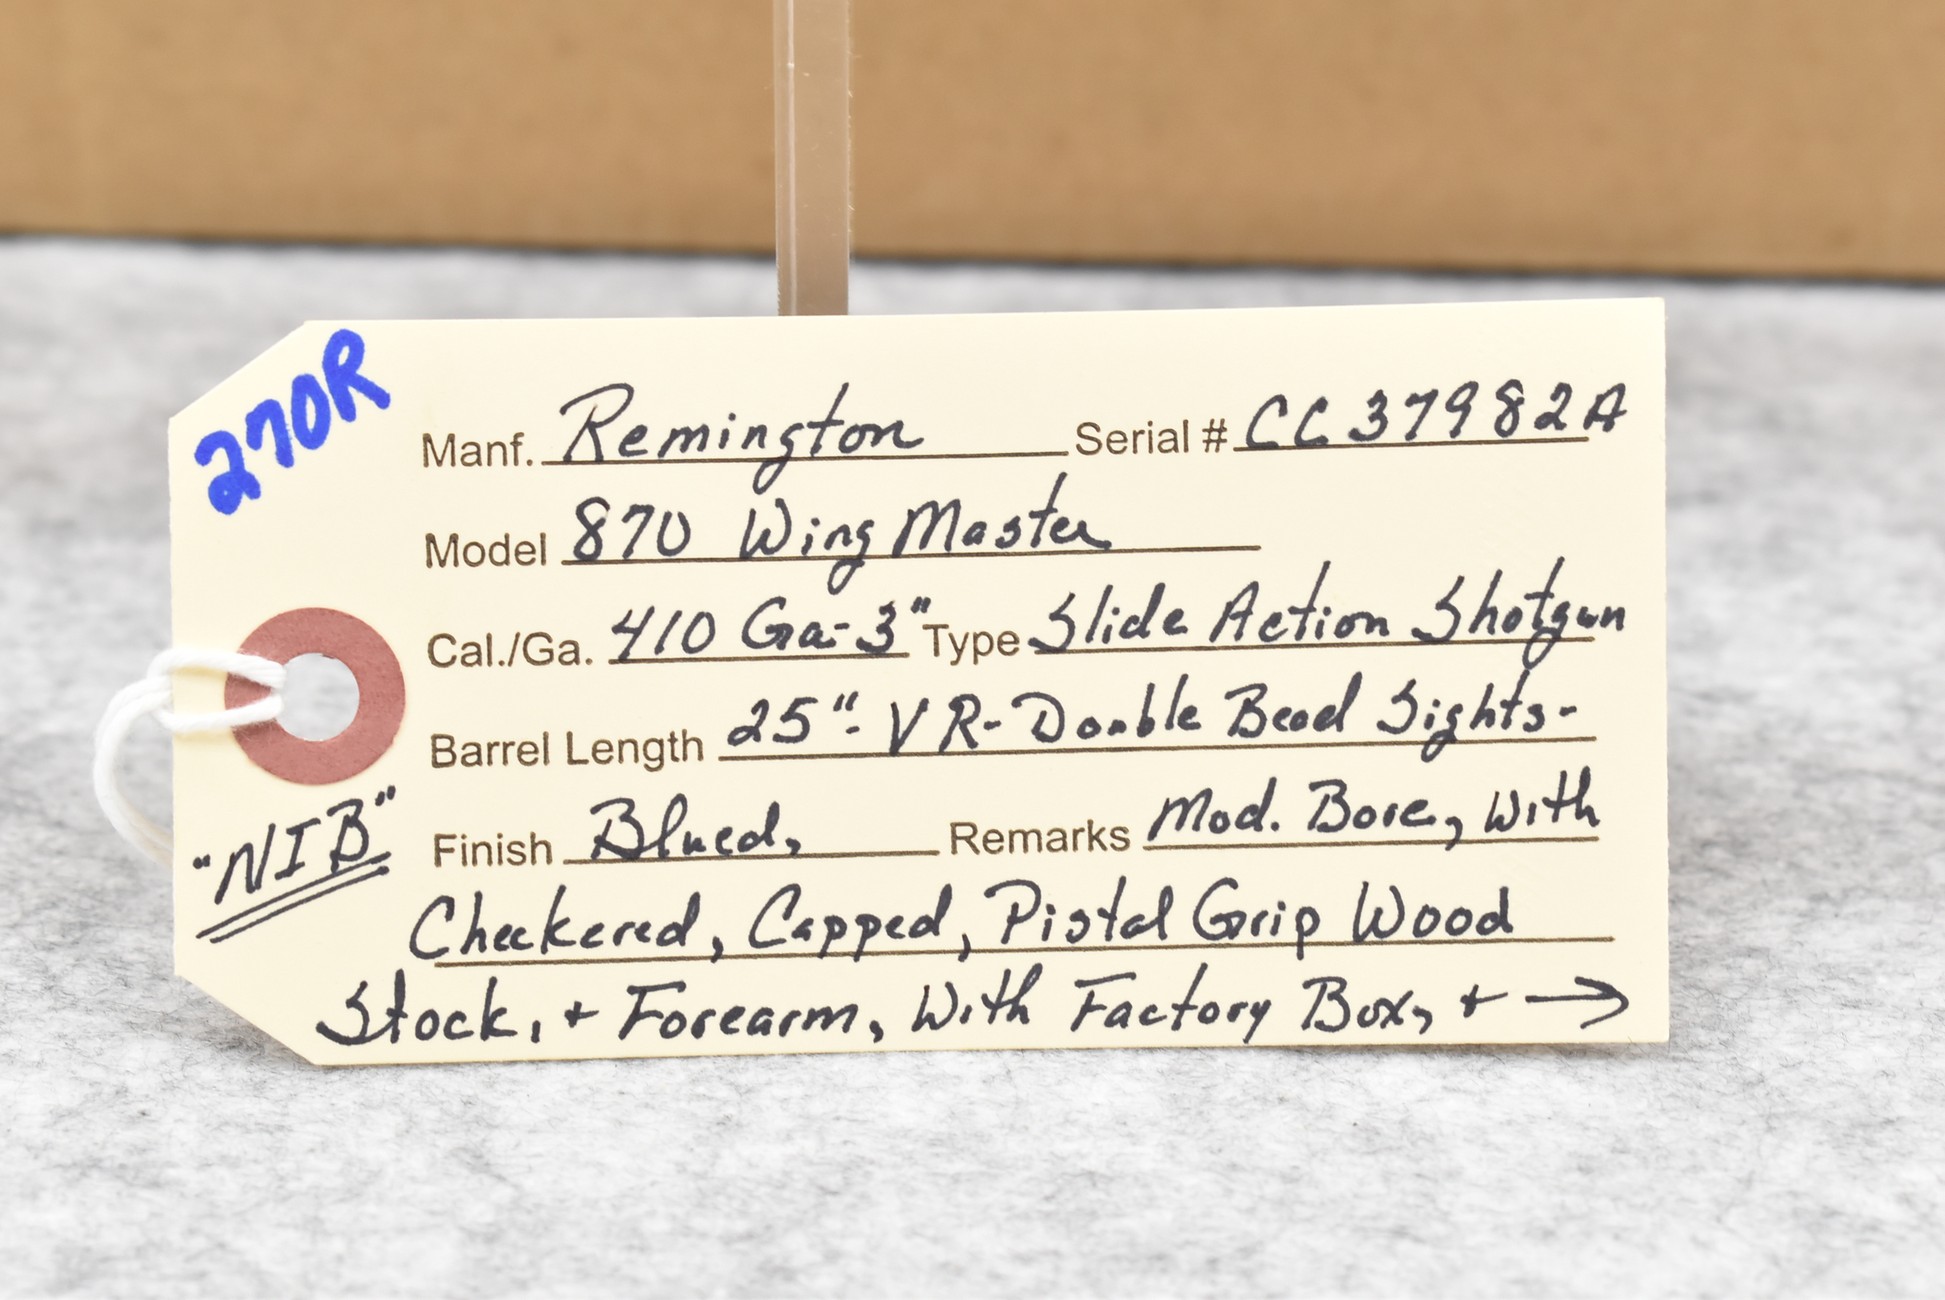 270R
Manf. Remington Serial # CC37982A
Model 870 WingMaster
Cal./Ga. 410 Ga-3" Type Slide Action Shotgun
Barrel Length 25"- VR-Double Bead Sights-
"NIB"
Finish Blued, Remarks Mod. Bore, with
Checkered, Capped, Pistol Grip Wood
Stock, + Forearm, With Factory Box, + →